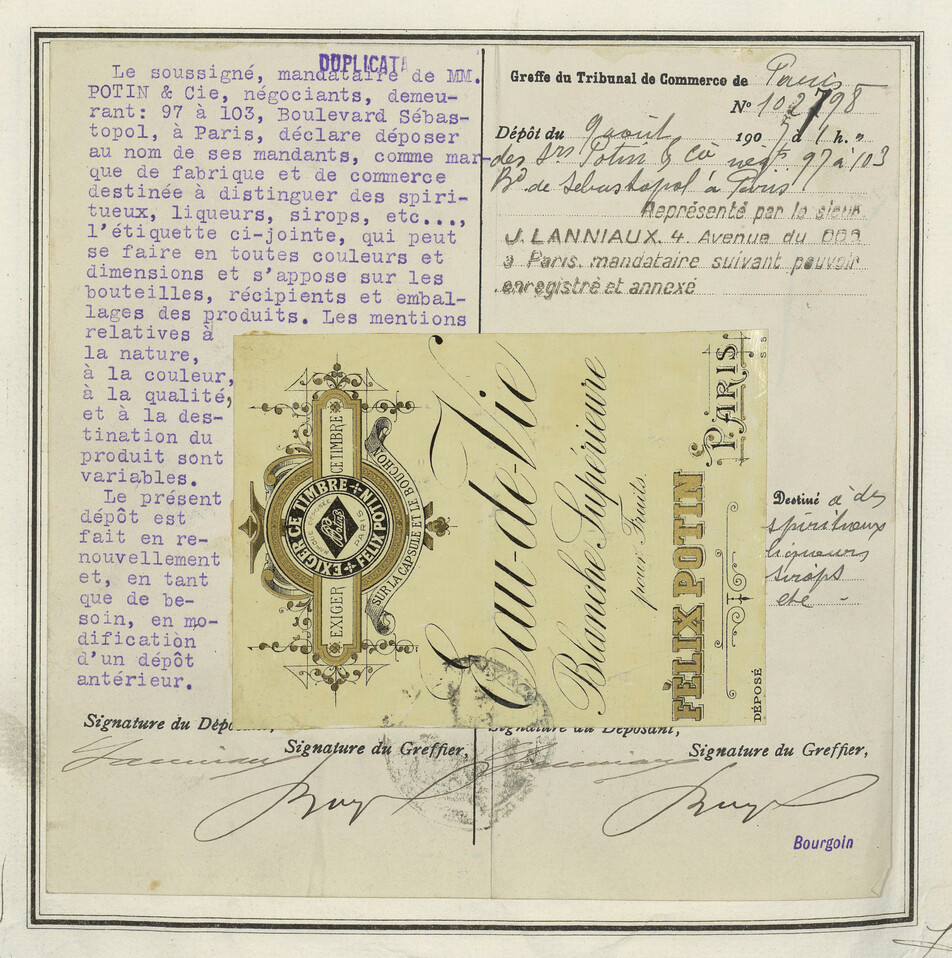 DUPLICATA
Le soussigné, mandataire de MM.
POTIN & Cie, négociants, demeu-
rant: 97 à 103, Boulevard Sébas-
topol, à Paris, déclare déposer
au nom de ses mandants, comme mar-
que de fabrique et de commerce
destinée à distinguer des spiri-
tueux, liqueurs, sirops, etc...,
l'étiquette ci-jointe, qui peut
se faire en toutes couleurs et
dimensions et s'appose sur les
bouteilles, récipients et embal-
lages des produits. Les mentions
relatives à
la nature,
à la couleur,
à la qualité,
et à la des-
tination du
produit sont
variables.
Le présent
dépôt est
fait en re-
nouvellement
et, en tant
que de be-
soin, en mo-
dification
d'un dépôt
antérieur.
Signature du Dépo
Signature du Greffier,
Greffe du Tribunal de Commerce de Paris
N° 102798
Dépôt du 9 août 1907 à 1 h. "
des Srs Potin & Cie négts 97 à 103
Bd de Sébastopol à Paris
Représenté par le sieur
J. LANNIAUX, 4, Avenue du
à Paris, mandataire suivant pouvoir
enregistré et annexé
Destiné à des
spiritueux
liqueurs
sirops
etc -
Signature du Déposant,
Signature du Greffier,
Bourgoin
EXIGER CE TIMBRE
EXIGER CE TIMBRE + FELIX POTIN +
PARIS
SUR LA CAPSULE ET LE BOUCHON
Eau-de-Vie
Blanche Supérieure
pour Fruits.
FÉLIX POTIN
PARIS
DÉPOSÉ